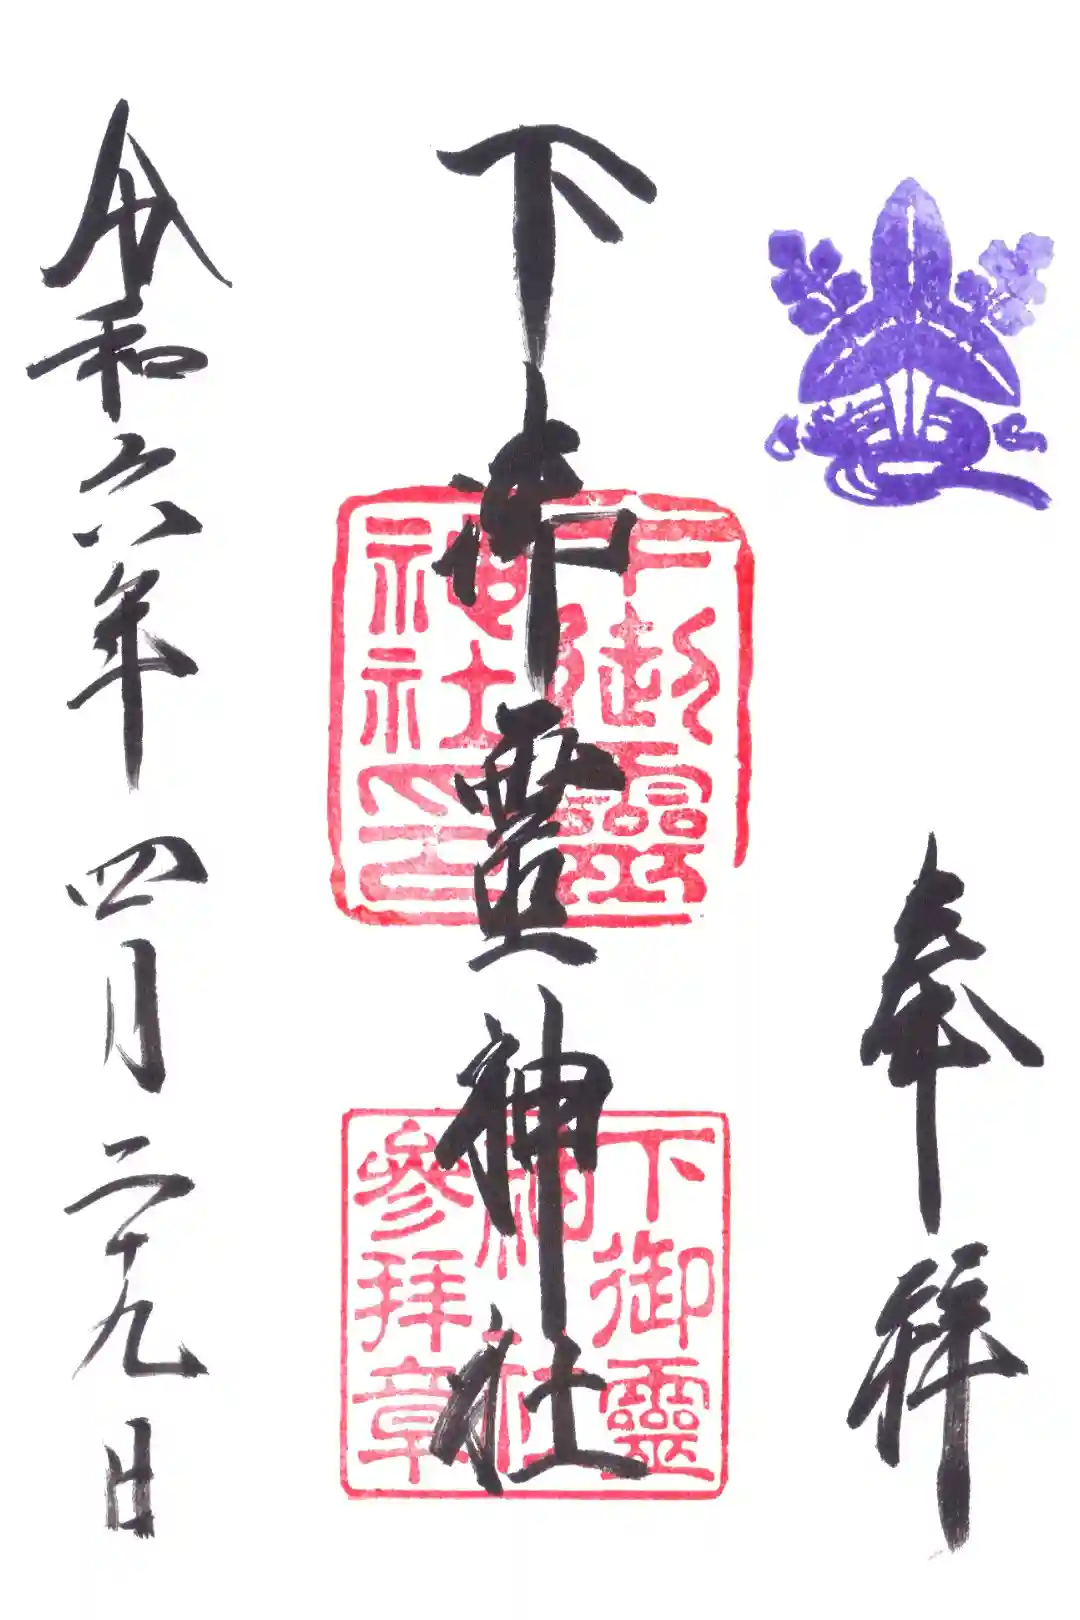 奉拝
下御霊神社
下御靈
神社印
下御靈
神社
參拜章
令和六年四月二十九日